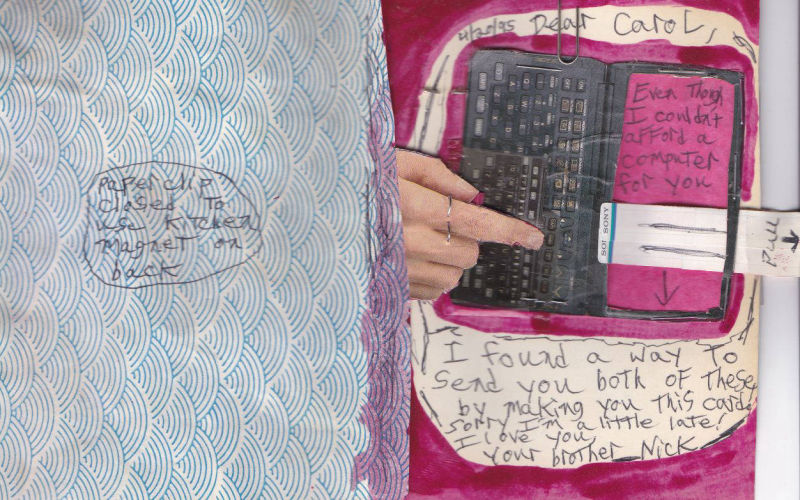 paperclip
closed to
use kitchen
magnet on
back
4/20/95 Dear Carol,
Even Though
I couldn't
afford a
computer
for you
SONY
Pull
I found a way to
Send you both of these
by making you this card.
sorry I'm a little late!
I love you,
your brother Nick